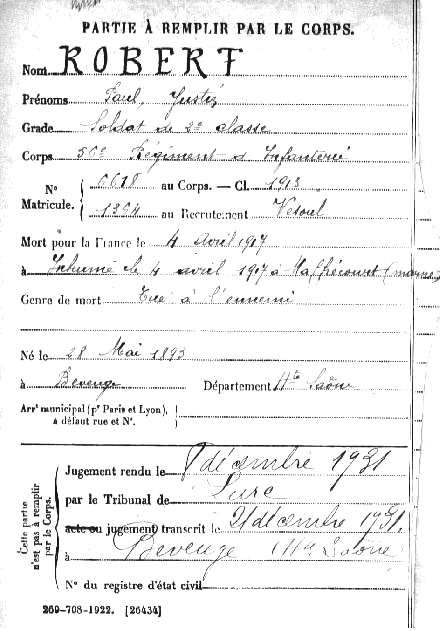 PARTIE À REMPLIR PAR LE CORPS.
Nom ROBERT
Prénoms Paul, Justin
Grade Soldat de 2e classe
Corps 56e Régiment d'Infanterie
N° Matricule. 6618 au Corps. — Cl. 1913
1394 au Recrutement Vesoul
Mort pour la France le 4 avril 1917
à Inhumé le 4 avril 1917 à (marne)
Genre de mort Tué à l'ennemi
Né le 28 Mai 1893
à Beveuge Département Hte Saône
Arrt municipal (pr Paris et Lyon),
à défaut rue et N°.
Cette partie n'est pas à remplir par le Corps.
Jugement rendu le décembre 1931
par le Tribunal de Lure
acte ou jugement transcrit le 21 décembre 1931.
à Beveuge (Hte Saône
N° du registre d'état civil
269-708-1922. [26434]